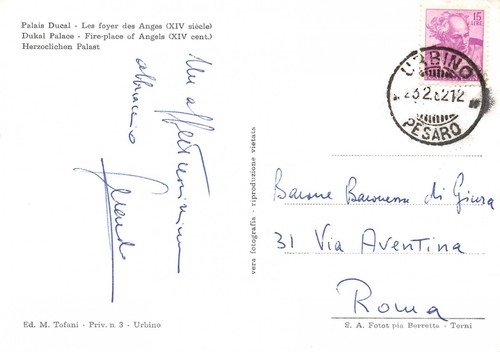 Palais Ducal - Les foyer des Anges (XIV siècle)
Dukal Palace - Fire-place of Angels (XIV cent.)
Herzoclichen Palast
15
LIRE
URBINO
PESARO
Un affettuosissimo
abbraccio
vera fotografia - riproduzione vietata
Barone Baronessa di Giura
31 Via Aventina
Roma
Ed. M. Tofani - Priv. n. 3 - Urbino
S. A. Fotot pia Berretta - Terni